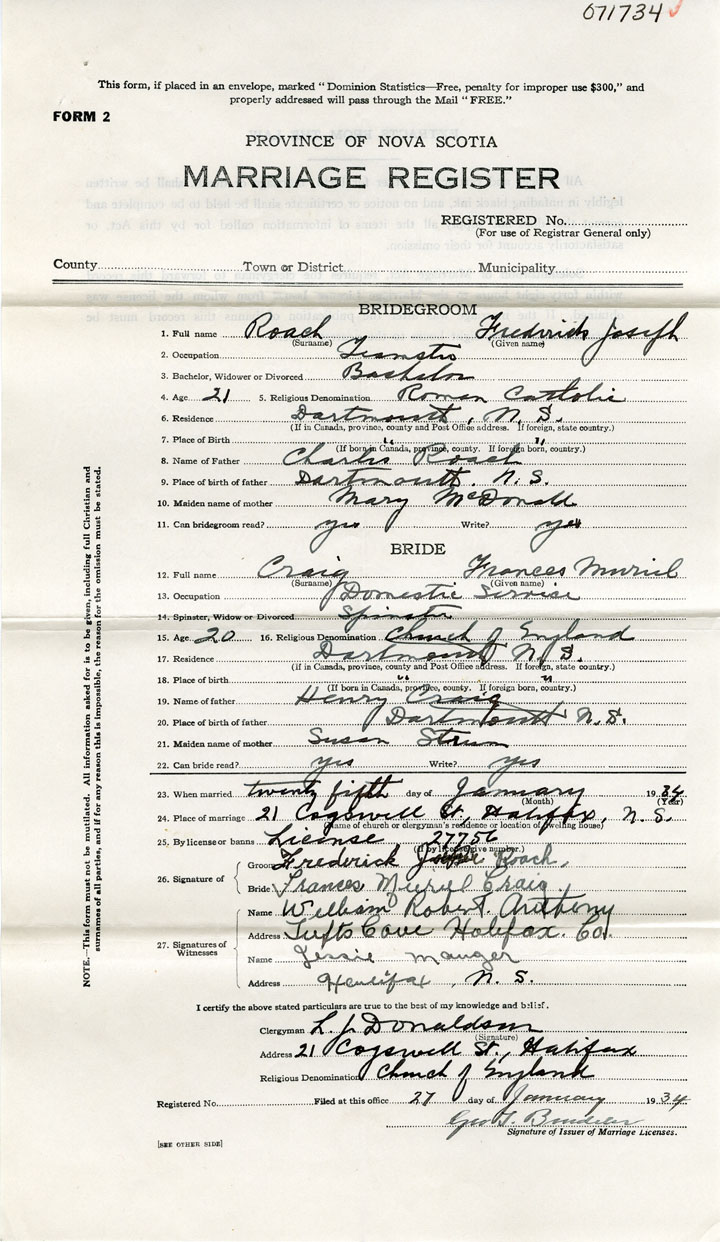 071734
This form, if placed in an envelope, marked "Dominion Statistics—Free, penalty for improper use $300," and
properly addressed will pass through the Mail "FREE."
FORM 2
PROVINCE OF NOVA SCOTIA
MARRIAGE REGISTER
REGISTERED No.
(For use of Registrar General only)
County Town or District Municipality
BRIDEGROOM
1. Full name Roach Frederick Joseph
(Surname) (Given name)
2. Occupation Teamster
3. Bachelor, Widower or Divorced Bachelor
4. Age 21 5. Religious Denomination Roman Catholic
6. Residence Dartmouth, N.S.
(If in Canada, province, county and Post Office address. If foreign, state country.)
7. Place of Birth " "
(If born in Canada, province, county. If foreign born, country.)
8. Name of Father Charles Roach
9. Place of birth of father Dartmouth. N.S.
10. Maiden name of mother Mary McDonald
11. Can bridegroom read? yes Write? yes
BRIDE
12. Full name Craig Frances Muriel
(Surname) (Given name)
13. Occupation Domestic Service
14. Spinster, Widow or Divorced Spinster
15. Age 20 16. Religious Denomination Church of England
17. Residence Dartmouth N.S.
(If in Canada, province, county and Post Office address. If foreign, state country.)
18. Place of birth " "
(If born in Canada, province, county. If foreign born, country.)
19. Name of father Henry Craig
20. Place of birth of father Dartmouth N.S.
21. Maiden name of mother Susan
22. Can bride read? yes Write? yes
23. When married twenty fifth day of January 1934
(Month) (Year)
24. Place of marriage 21 Cogswell St, Halifax, N.S.
(Name of church or clergyman's residence or location of dwelling house)
25. By license or banns License 27756
(If by license give number.)
26. Signature of
Groom Frederick Roach
Bride Frances Muriel Craig
27. Signatures of Witnesses
Name William Robert Anthony
Address Tufts Cove Halifax. Co.
Name Jessie Mauger
Address Halifax, N.S.
I certify the above stated particulars are true to the best of my knowledge and belief.
Clergyman L. J. Donaldson
(Signature)
Address 21 Cogswell St., Halifax
Religious Denomination Church of England
Registered No. Filed at this office 27 day of January 1934
Geo
Signature of Issuer of Marriage Licenses.
[SEE OTHER SIDE]
NOTE.—This form must not be mutilated. All information asked for is to be given, including full Christian and
surnames of all parties, and if for any reason this is impossible, the reason for the omission must be stated.